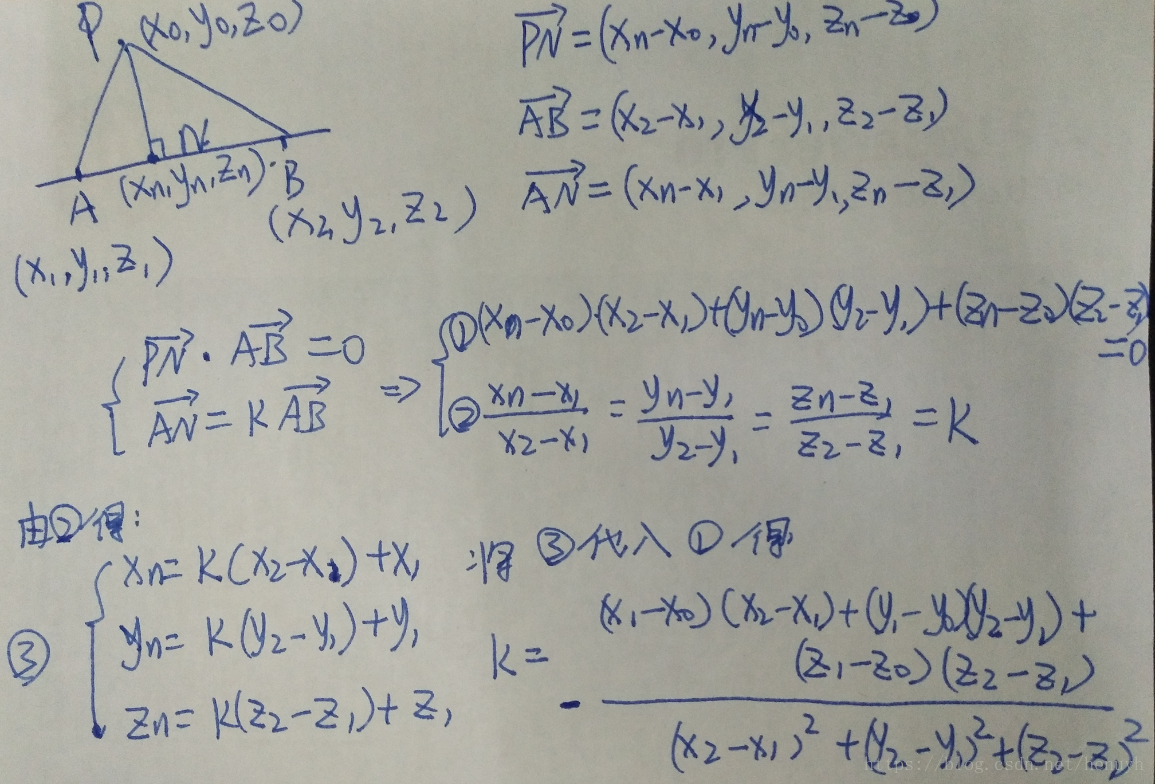 P (x₀,y₀,z₀)
N
A (xₙ,yₙ,zₙ) B
(x₂,y₂,z₂)
(x₁,y₁,z₁)
PN⃗ = (xₙ-x₀, yₙ-y₀, zₙ-z₀)
AB⃗ = (x₂-x₁, y₂-y₁, z₂-z₁)
AN⃗ = (xₙ-x₁, yₙ-y₁, zₙ-z₁)
{ PN⃗ · AB⃗ = 0
AN⃗ = K AB⃗
=> { ①(xₙ-x₀)·(x₂-x₁)+(yₙ-y₀)(y₂-y₁)+(zₙ-z₀)(z₂-z₁)
=0
②(xₙ-x₁)/(x₂-x₁) = (yₙ-y₁)/(y₂-y₁) = (zₙ-z₁)/(z₂-z₁) = K
由②得:
③ { xₙ= K(x₂-x₁)+x₁
yₙ= K(y₂-y₁)+y₁
zₙ= K(z₂-z₁)+z₁
将③代入①得
(x₁-x₀)(x₂-x₁)+(y₁-y₀)(y₂-y₁)+
(z₁-z₀)(z₂-z₁)
K = - ———
(x₂-x₁)²+(y₂-y₁)²+(z₂-z₁)²